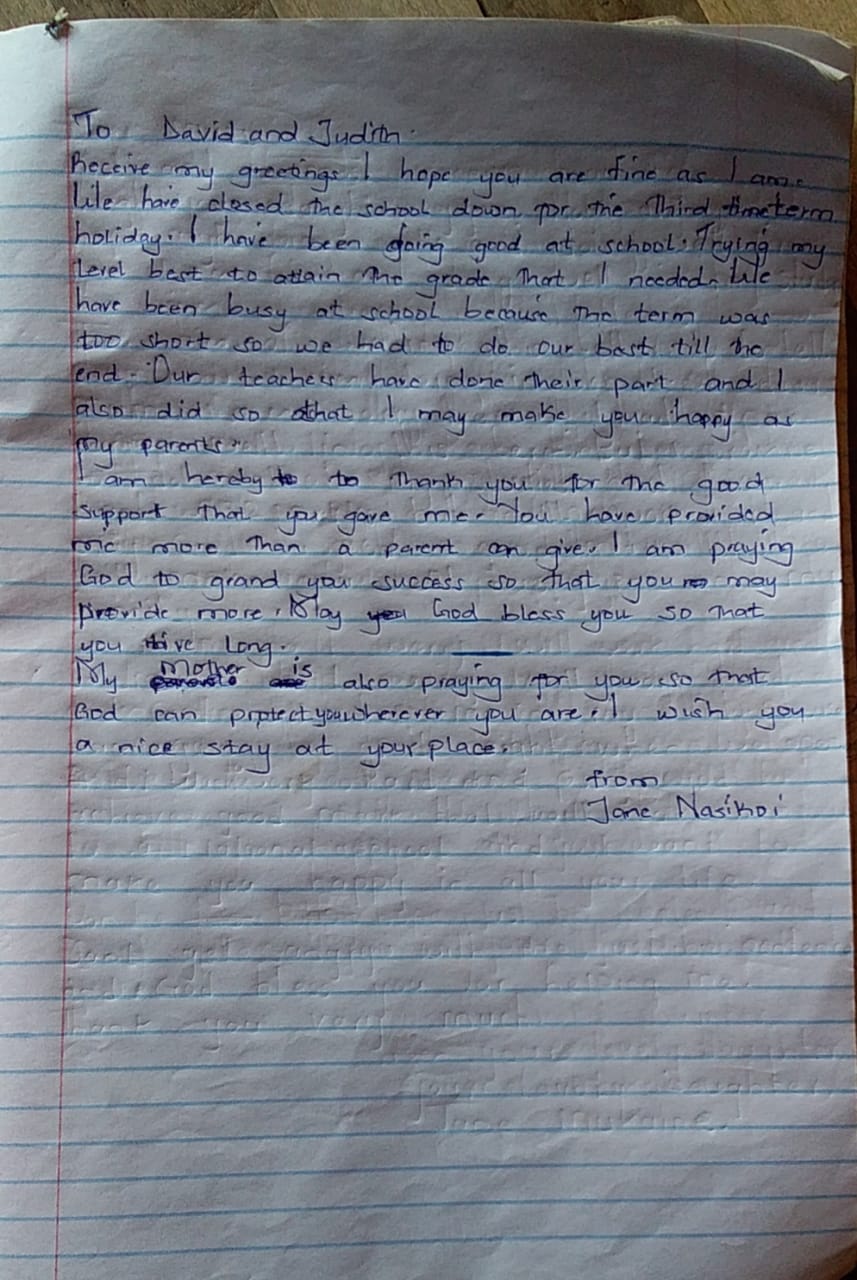 To David and Judith.
Receive my greetings I hope you are fine as I am.
We have closed the school down for the Third term
holiday. I have been doing good at school. Trying my
Level best to attain the grade that I needed. We
have been busy at school because the term was
too short so we had to do our best till the
end. Our teachers have done their part and I
also did so that I may make you happy as
my parents.
I am hereby to thank you for the good
support that you gave me. You have provided
me more than a parent can give. I am praying
God to grand you success so that you may
provide more. May God bless you so that
you live Long.
My mother is also praying for you so that
God can protect you wherever you are. I wish you
a nice stay at your place.
from
Jane Nasikoi